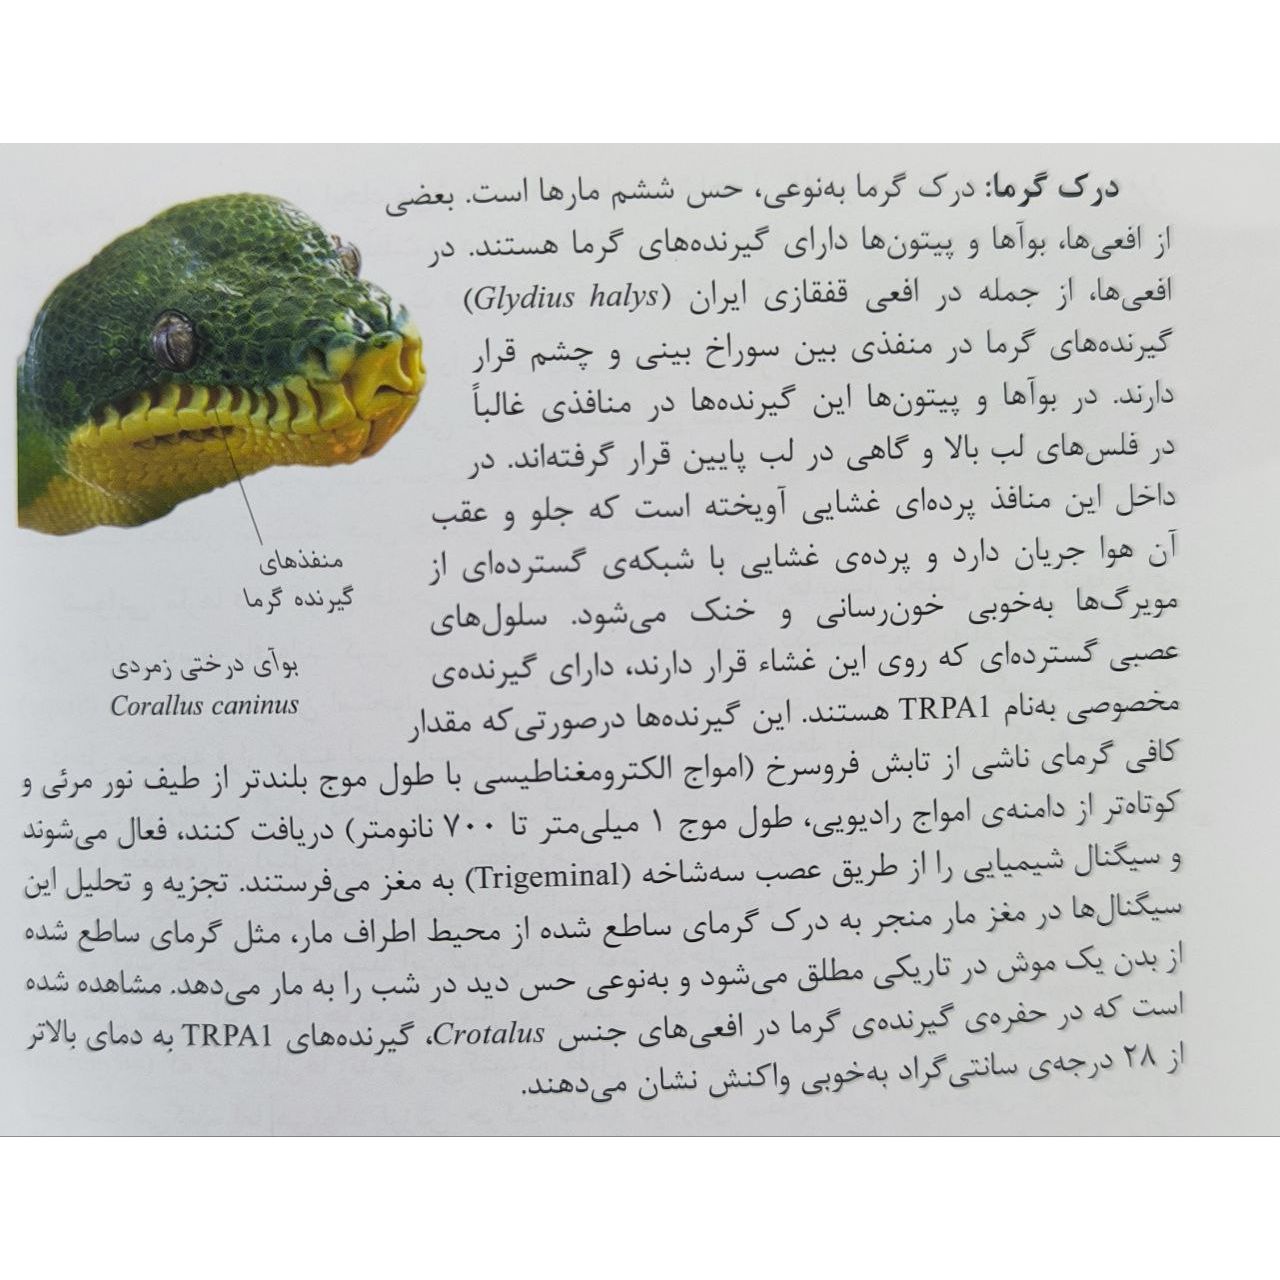 درک گرما: درک گرما به‌نوعی، حس ششم مارها است. بعضی
از افعی‌ها، بوآها و پیتون‌ها دارای گیرنده‌های گرما هستند. در
افعی‌ها، از جمله در افعی قفقازی ایران (Glydius halys)
گیرنده‌های گرما در منفذی بین سوراخ بینی و چشم قرار
دارند. در بوآها و پیتون‌ها این گیرنده‌ها در منافذی غالباً
در فلس‌های لب بالا و گاهی در لب پایین قرار گرفته‌اند. در
داخل این منافذ پرده‌ای غشایی آویخته است که جلو و عقب
آن هوا جریان دارد و پرده‌ی غشایی با شبکه‌ی گسترده‌ای از
مویرگ‌ها به‌خوبی خون‌رسانی و خنک می‌شود. سلول‌های
عصبی گسترده‌ای که روی این غشاء قرار دارند، دارای گیرنده‌ی
مخصوصی به‌نام TRPA1 هستند. این گیرنده‌ها درصورتی‌که مقدار
کافی گرمای ناشی از تابش فروسرخ (امواج الکترومغناطیسی با طول موج بلندتر از طیف نور مرئی و
کوتاه‌تر از دامنه‌ی امواج رادیویی، طول موج ۱ میلی‌متر تا ۷۰۰ نانومتر) دریافت کنند، فعال می‌شوند
و سیگنال شیمیایی را از طریق عصب سه‌شاخه (Trigeminal) به مغز می‌فرستند. تجزیه و تحلیل این
سیگنال‌ها در مغز مار منجر به درک گرمای ساطع شده از محیط اطراف مار، مثل گرمای ساطع شده
از بدن یک موش در تاریکی مطلق می‌شود و به‌نوعی حس دید در شب را به مار می‌دهد. مشاهده شده
است که در حفره‌ی گیرنده‌ی گرما در افعی‌های جنس Crotalus، گیرنده‌های TRPA1 به دمای بالاتر
از ۲۸ درجه‌ی سانتی‌گراد به‌خوبی واکنش نشان می‌دهند.
منفذهای
گیرنده گرما
بوآی درختی زمردی
Corallus caninus